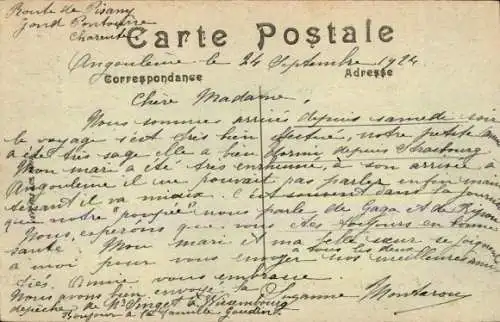 Route de Pisany
Gond Pontouvre
Charente
Carte Postale
Angoulême le 24 Septembre 1924
Correspondance
Adresse
Chère Madame,
Nous sommes arrivés depuis samedi soir
le voyage s'est très bien effectué, notre petite amie
a été très sage elle a bien dormi depuis Strasbourg
Mon mari a été très enrhumé, à son arrivée à
Angoulême il ne pouvait pas parler enfin main
tenant il va mieux. C'est souvent dans la journée
que notre "poupée" nous parle de Gaga et de
Nous espérons que vous êtes toujours en bonne
santé. Mon mari et ma belle sœur se joignent
à moi pour vous envoyer à tous les deux nos meilleures amitiés
Amie vous embrasse
Suzanne
Nous avons bien envoyé la
dépêche de Mr à Wissembourg
Bonjour à la famille